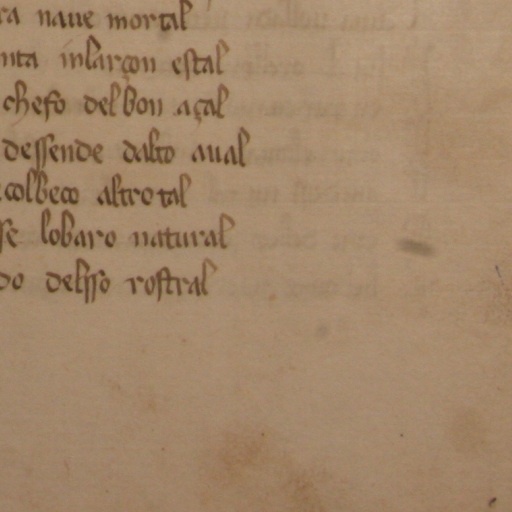 ra naue mortal
nta inlarçon estal
chefo delbon açal
dessende dalto aual
colbeco altrotal
se lobaro natural
do delsso rostral